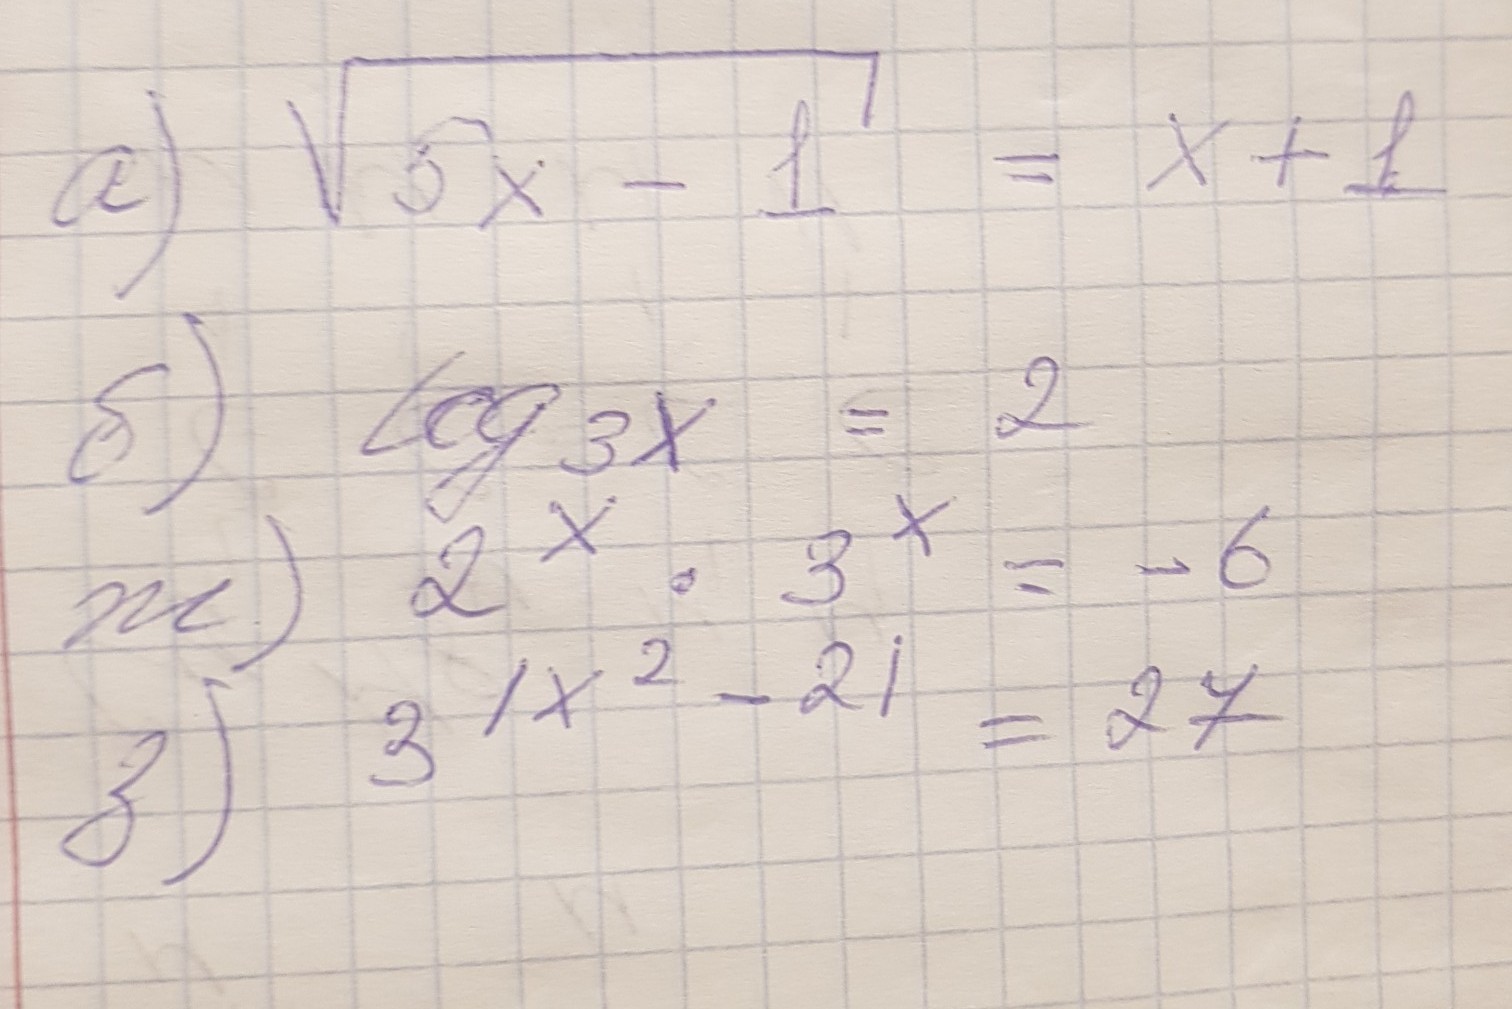 а) √5x - 1 = x + 1
б) log₃x = 2
ж) 2^x · 3^x = -6
з) 3^|x² - 2| = 27